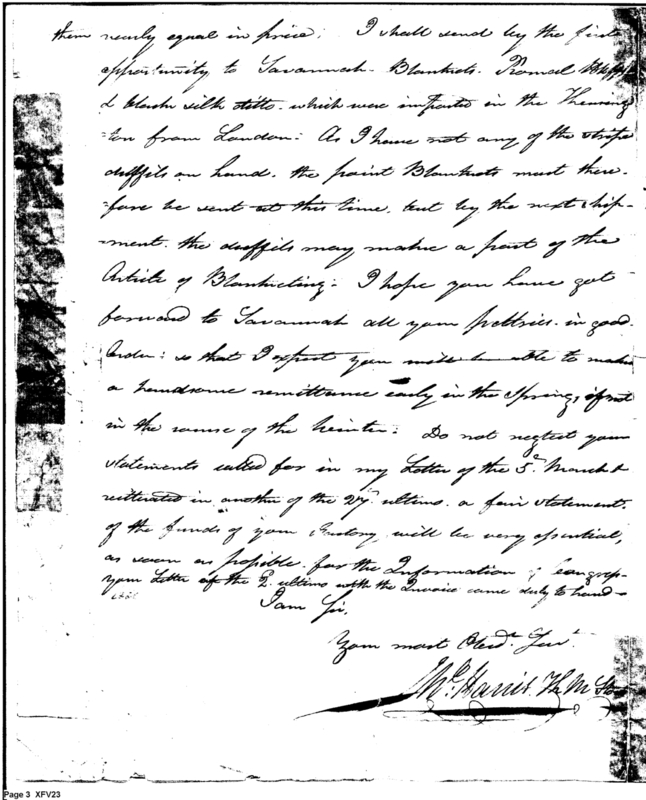 them nearly equal in price; I shall send by the first
opportunity to Savannah - Blankets. Romal Hkffs
& black silk ditto. which were imported in the
ton from London: As I have not any of the stripe
duffils on hand. the point Blankets must there-
-fore be sent at this time. but by the next ship-
-ment. the duffils may make a part of the
Article of Blanketing: I hope you have got
forward to Savannah all your peltries. in good
order: so that I expect you will be able to make
a handsome remittance early in the Spring, if not
in the course of the Winter: Do not neglect your
statements called for in my Letter of the 5th March &
reitterated in another of the 27th ultimo. a fair statement.
of the funds of your Factory, will be very essential,
as soon as possible. for the Information of Congress-
your Letter of the 2 ultimo with the Invoice came duly to hand-
I am Sir,
Your most Obedt. Servt.
Jno. Harris K M Sto
Page 3 XFV23